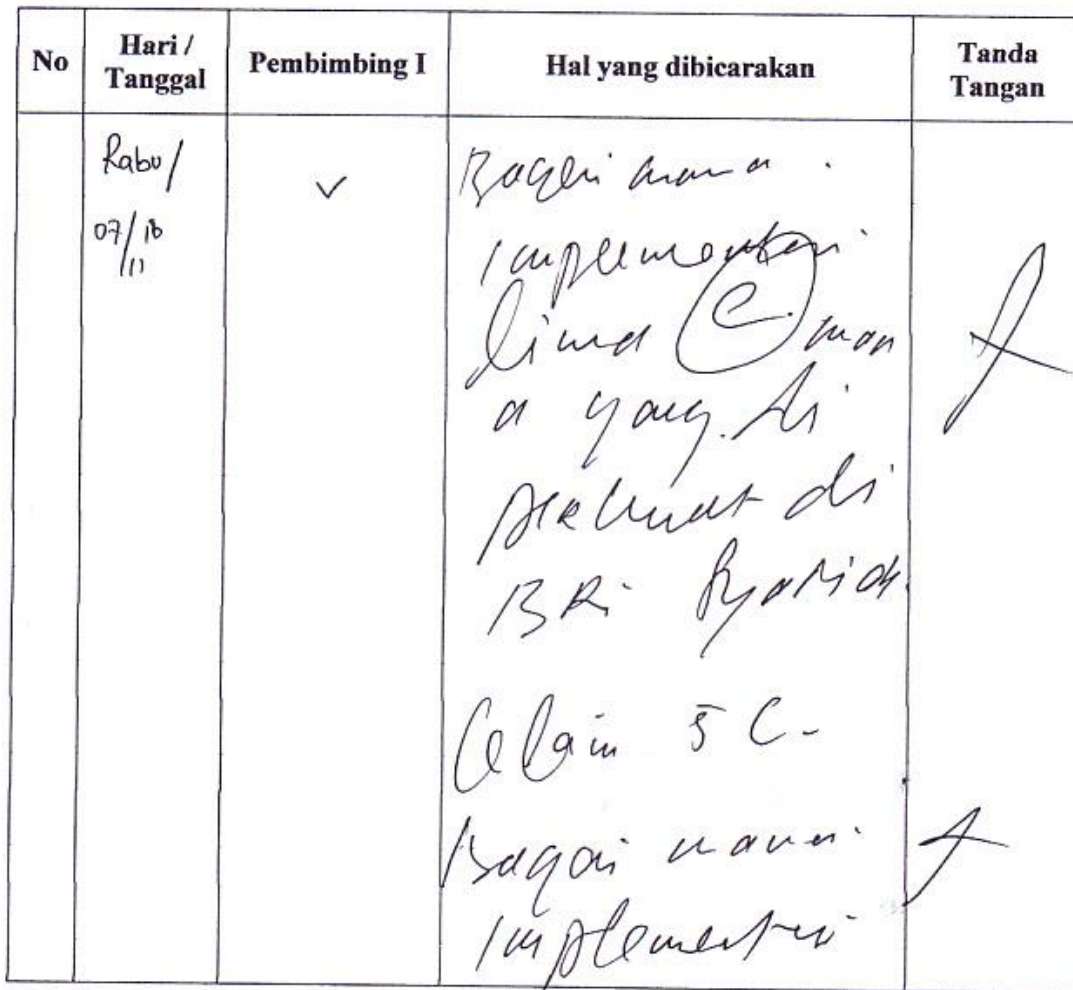 No Hari / Tanggal Pembimbing I Hal yang dibicarakan Tanda Tangan
Rabu /
07/18
/11
✓
Bagai mana
implementasi
lima C mana
a yang di
di
BRI Syariah
5 C -
Bagai mana
implementasi